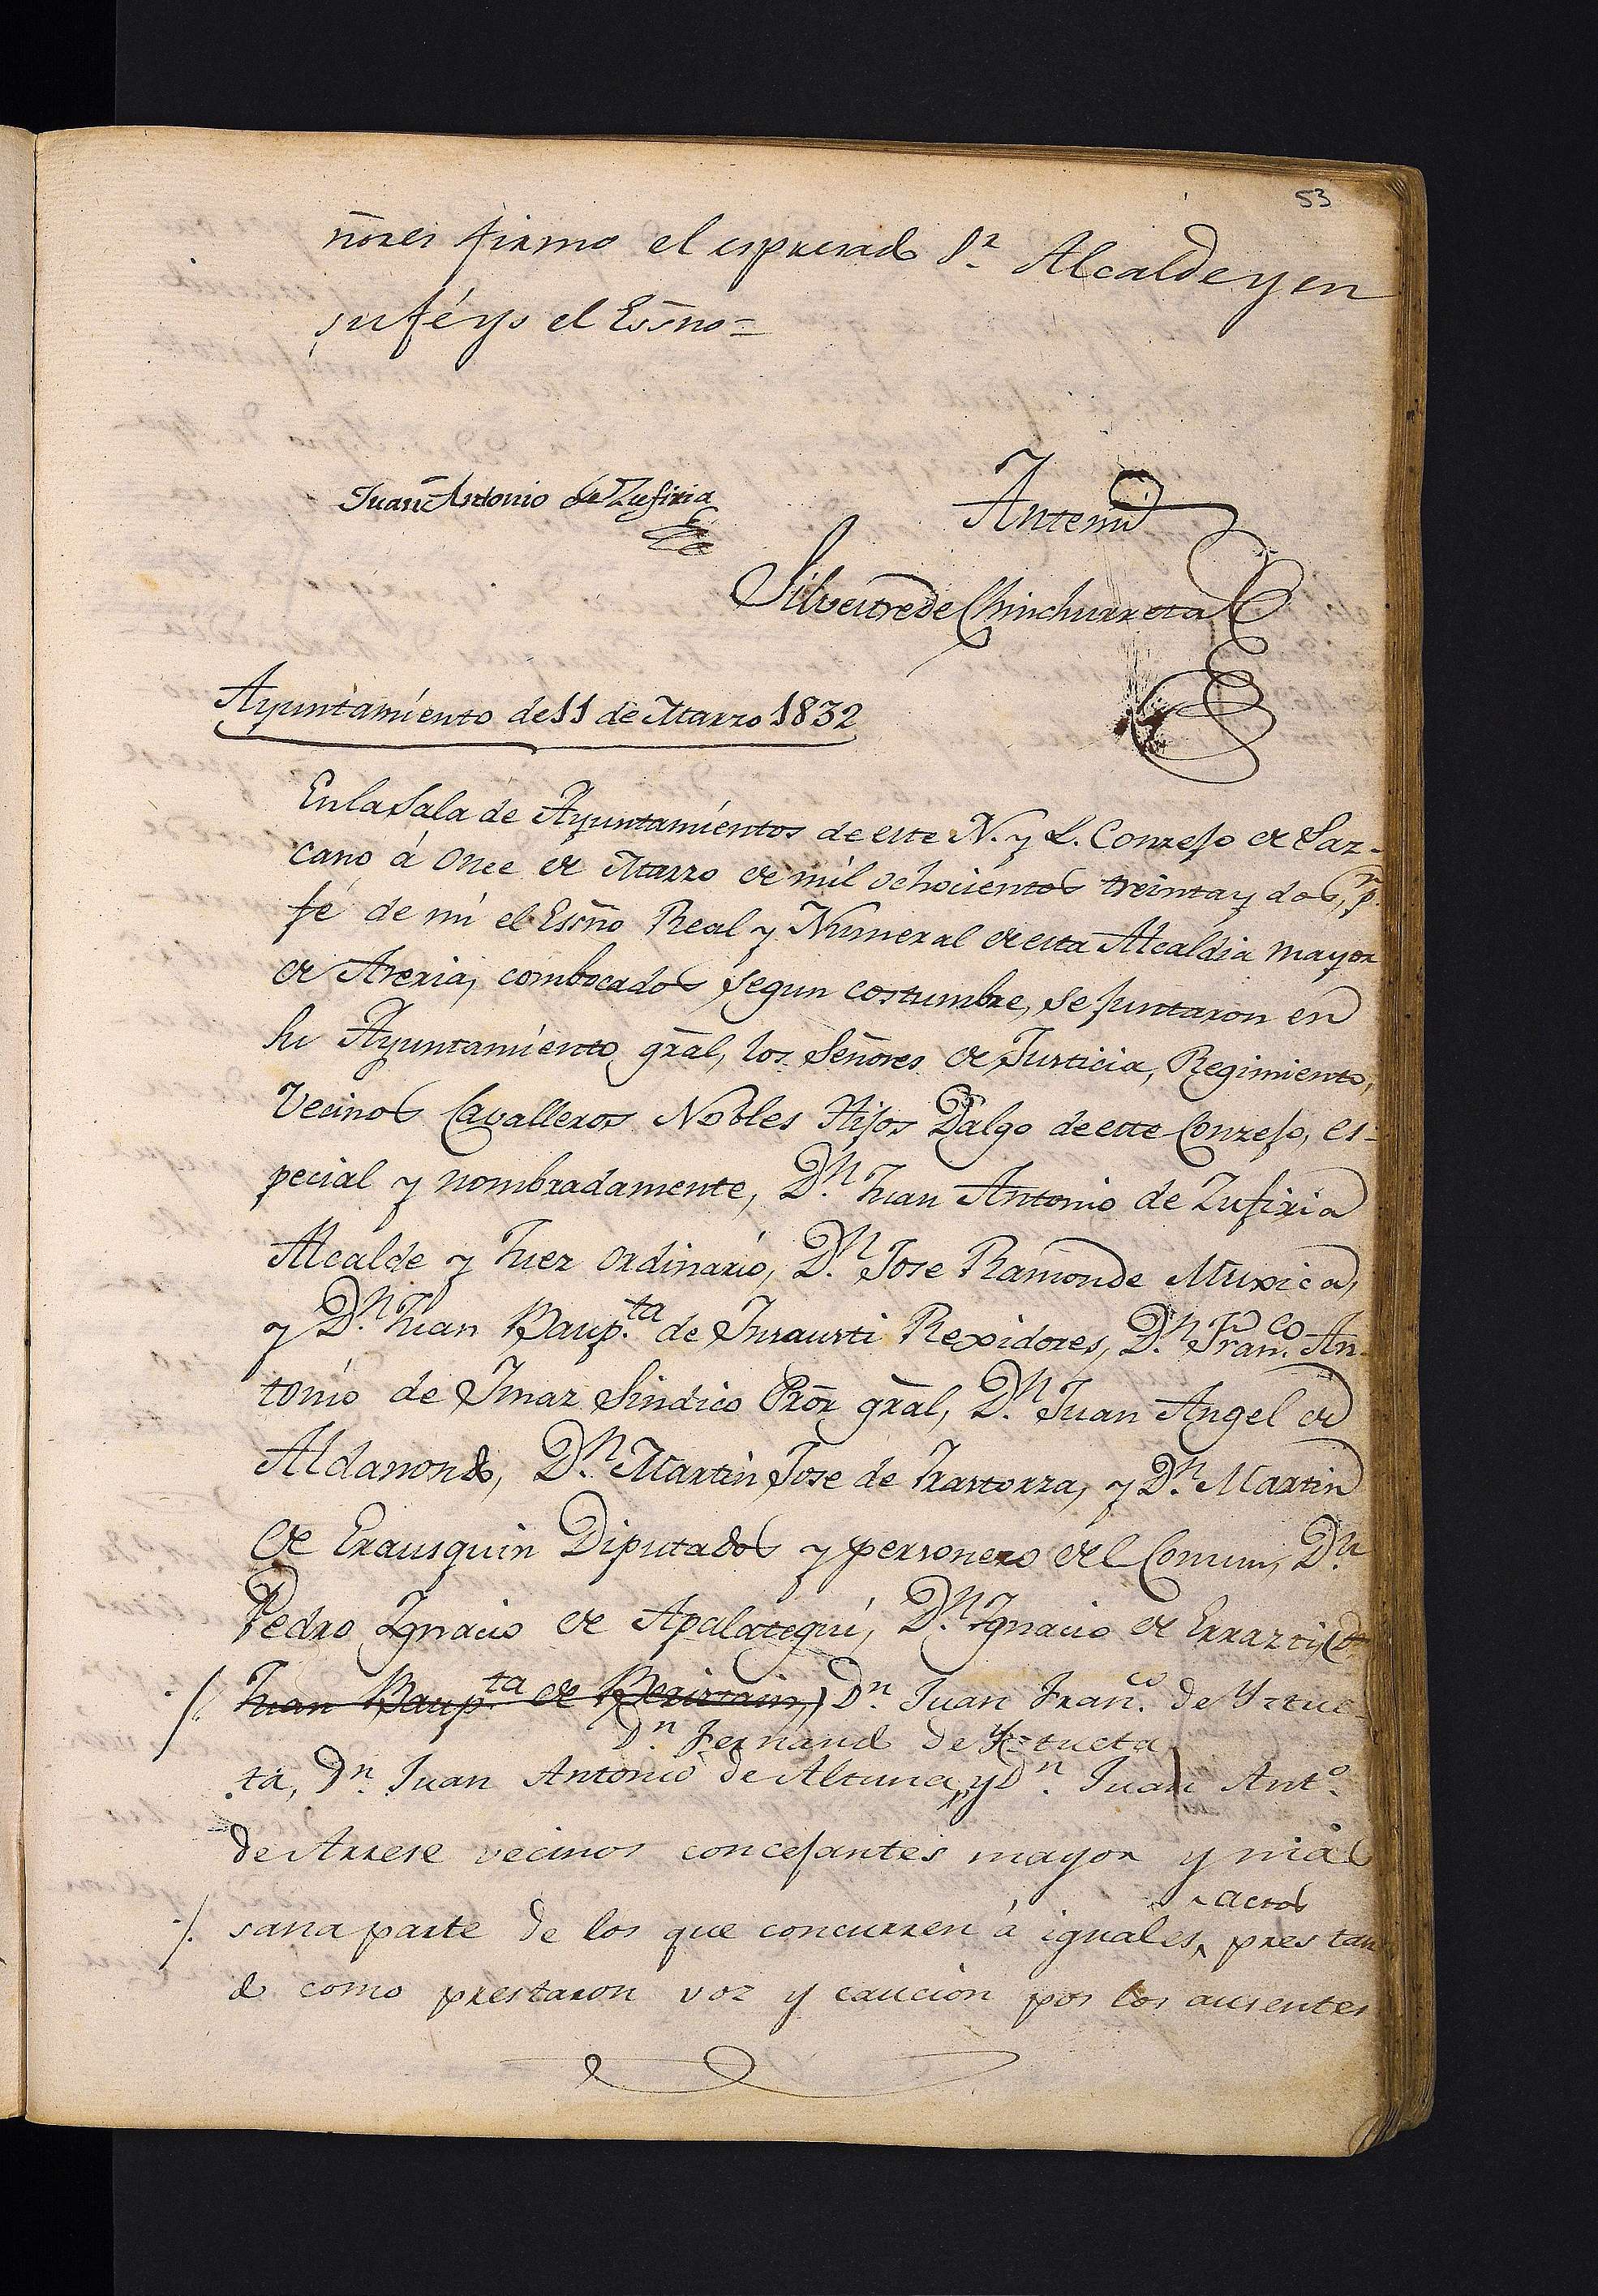 53
ñores firmo el espresado S.r Alcalde y en
su fé yo el Essno=
Juan Antonio de Zufiria
Antemi
Silvestre de Chinchurreta
Ayuntamiento de 11 de Marzo 1832
En la Sala de Ayuntamientos de este N. y L. Conzejo de Laz-
cano, á Once de Marzo de mil ochocientos treinta y dos, p.r
fé de mi el Essno Real y Numeral de esta Alcaldia mayor
de Areria, combocados segun costumbre, se juntaron en
su Ayuntamiento gral, los Señores de Justicia, Regimiento,
Vecinos Cavalleros Nobles Hijos Dalgo de este Conzejo, es-
pecial y nombradamente, D.n Juan Antonio de Zufiria
Alcalde y Juez ordinario, D.n Jose Ramon de Muxica,
y D.n Juan Baup.ta de Insausti Rexidores, D.n Fran.co An-
tonio de Imaz Sindico Pror gral, D.n Juan Angel de
Aldanondo, D.n Martin Jose de Irastorza, y D.n Martin
de Erausquin Diputados y personero del Comun, D.n
Pedro Ygnacio de Apalategui, D.n Ygnacio de Errazti, (D.n
Juan Baup.ta de Beristain,) D.n Juan Fran.co de Yztue-
D.n Fernando de Yztueta
ta, D.n Juan Antonio de Altuna, y D.n Juan Ant.o
de Arrese vecinos concejantes mayor y mas
actos
sana parte de los que concurren á iguales, prestan
do como prestaron voz y caucion por los ausentes